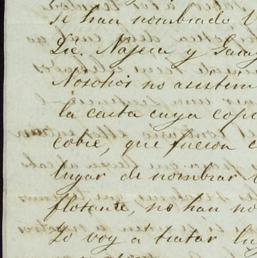 Se han nombrado
Lic. Najera y
Nosotros no asistem
la carta cuya cop
cobre, que fueron
lugar de nombrar
flotante, no han no
Yo voy a tratar